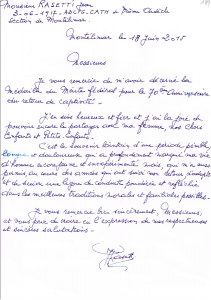 Monsieur RASETTI Jean
2-06-1917- ADCPG-CATM de Drôme Ardèche
Section de Montélimar.
Montélimar le 18 Juin 2015
Messieurs
Je vous remercie de m'avoir décerné la
Médaille du Mérite fédéral pour le 70ème Anniversaire
du retour de captivité.
J'en suis heureux et fier et j'ai la joie de
pouvoir encore le partager avec ma femme, nos chers
Enfants et Petits Enfants.
C'est le souvenir lointain d'une période pénible
longue et douloureuse qui a profondément marqué ma vie
d'homme accomplie et expérimentée mais, qui m'a aussi
permis, au cours des années qui ont suivi mon retour, d'adopter
et de suivre une ligne de conduite pondérée et réfléchie
dans les meilleures traditions morales et familiales possible.
Je vous remercie bien sincèrement, Messieurs,
et vous prie de croire en l'expression de mes respectueuses
et sincères salutations.